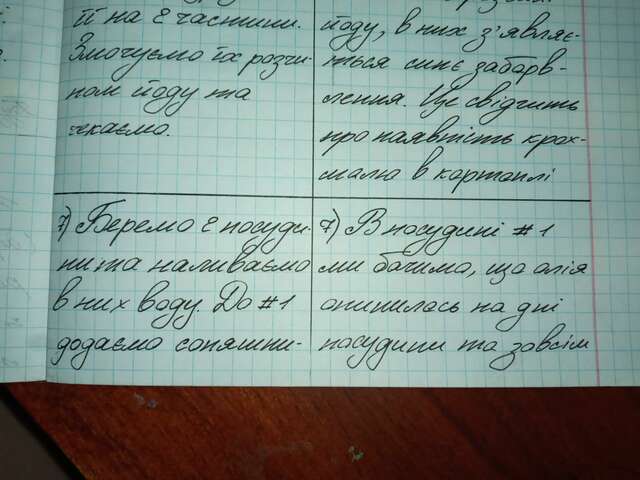 її на 2 частини.
Змочуємо їх розчи-
ном йоду та
чекаємо.
йоду, в них з'являє-
ться синє забарв-
лення. Це свідчить
про наявність крох-
малю в картоплі
7) Беремо 2 посуди-
ни та наливаємо
в них воду. До #1
додаємо соняшни-
7) В посудині #1
ми бачимо, що олія
опинилась на дні
посудини та зовсім